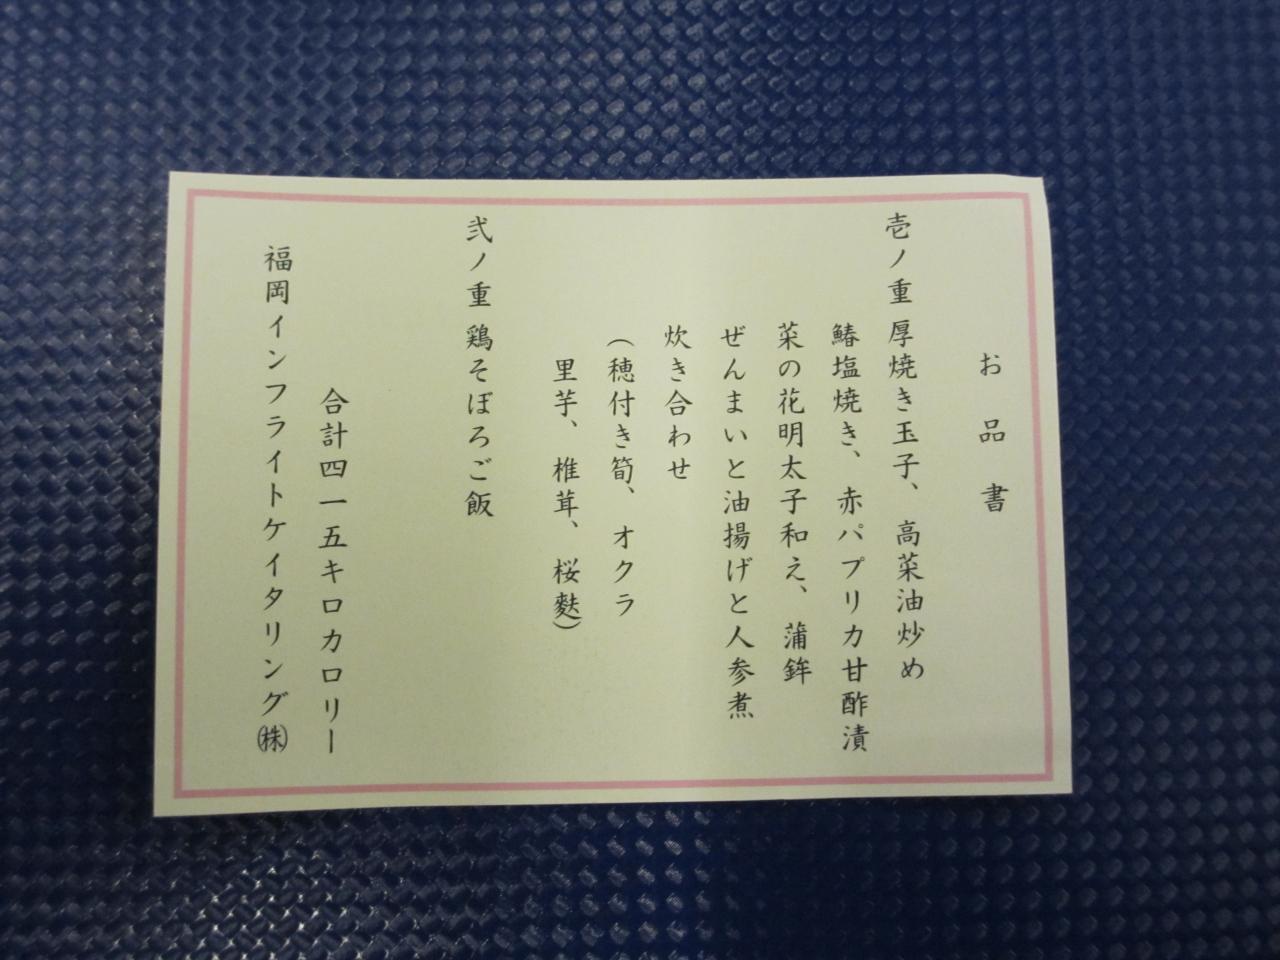 お品書
壱ノ重 厚焼き玉子、高菜油炒め
鰆塩焼き、赤パプリカ甘酢漬
菜の花明太子和え、蒲鉾
ぜんまいと油揚げと人参煮
炊き合わせ
（穂付き筍、オクラ
里芋、椎茸、桜麩）
弐ノ重 鶏そぼろご飯
合計四一五キロカロリー
福岡インフライトケイタリング㈱